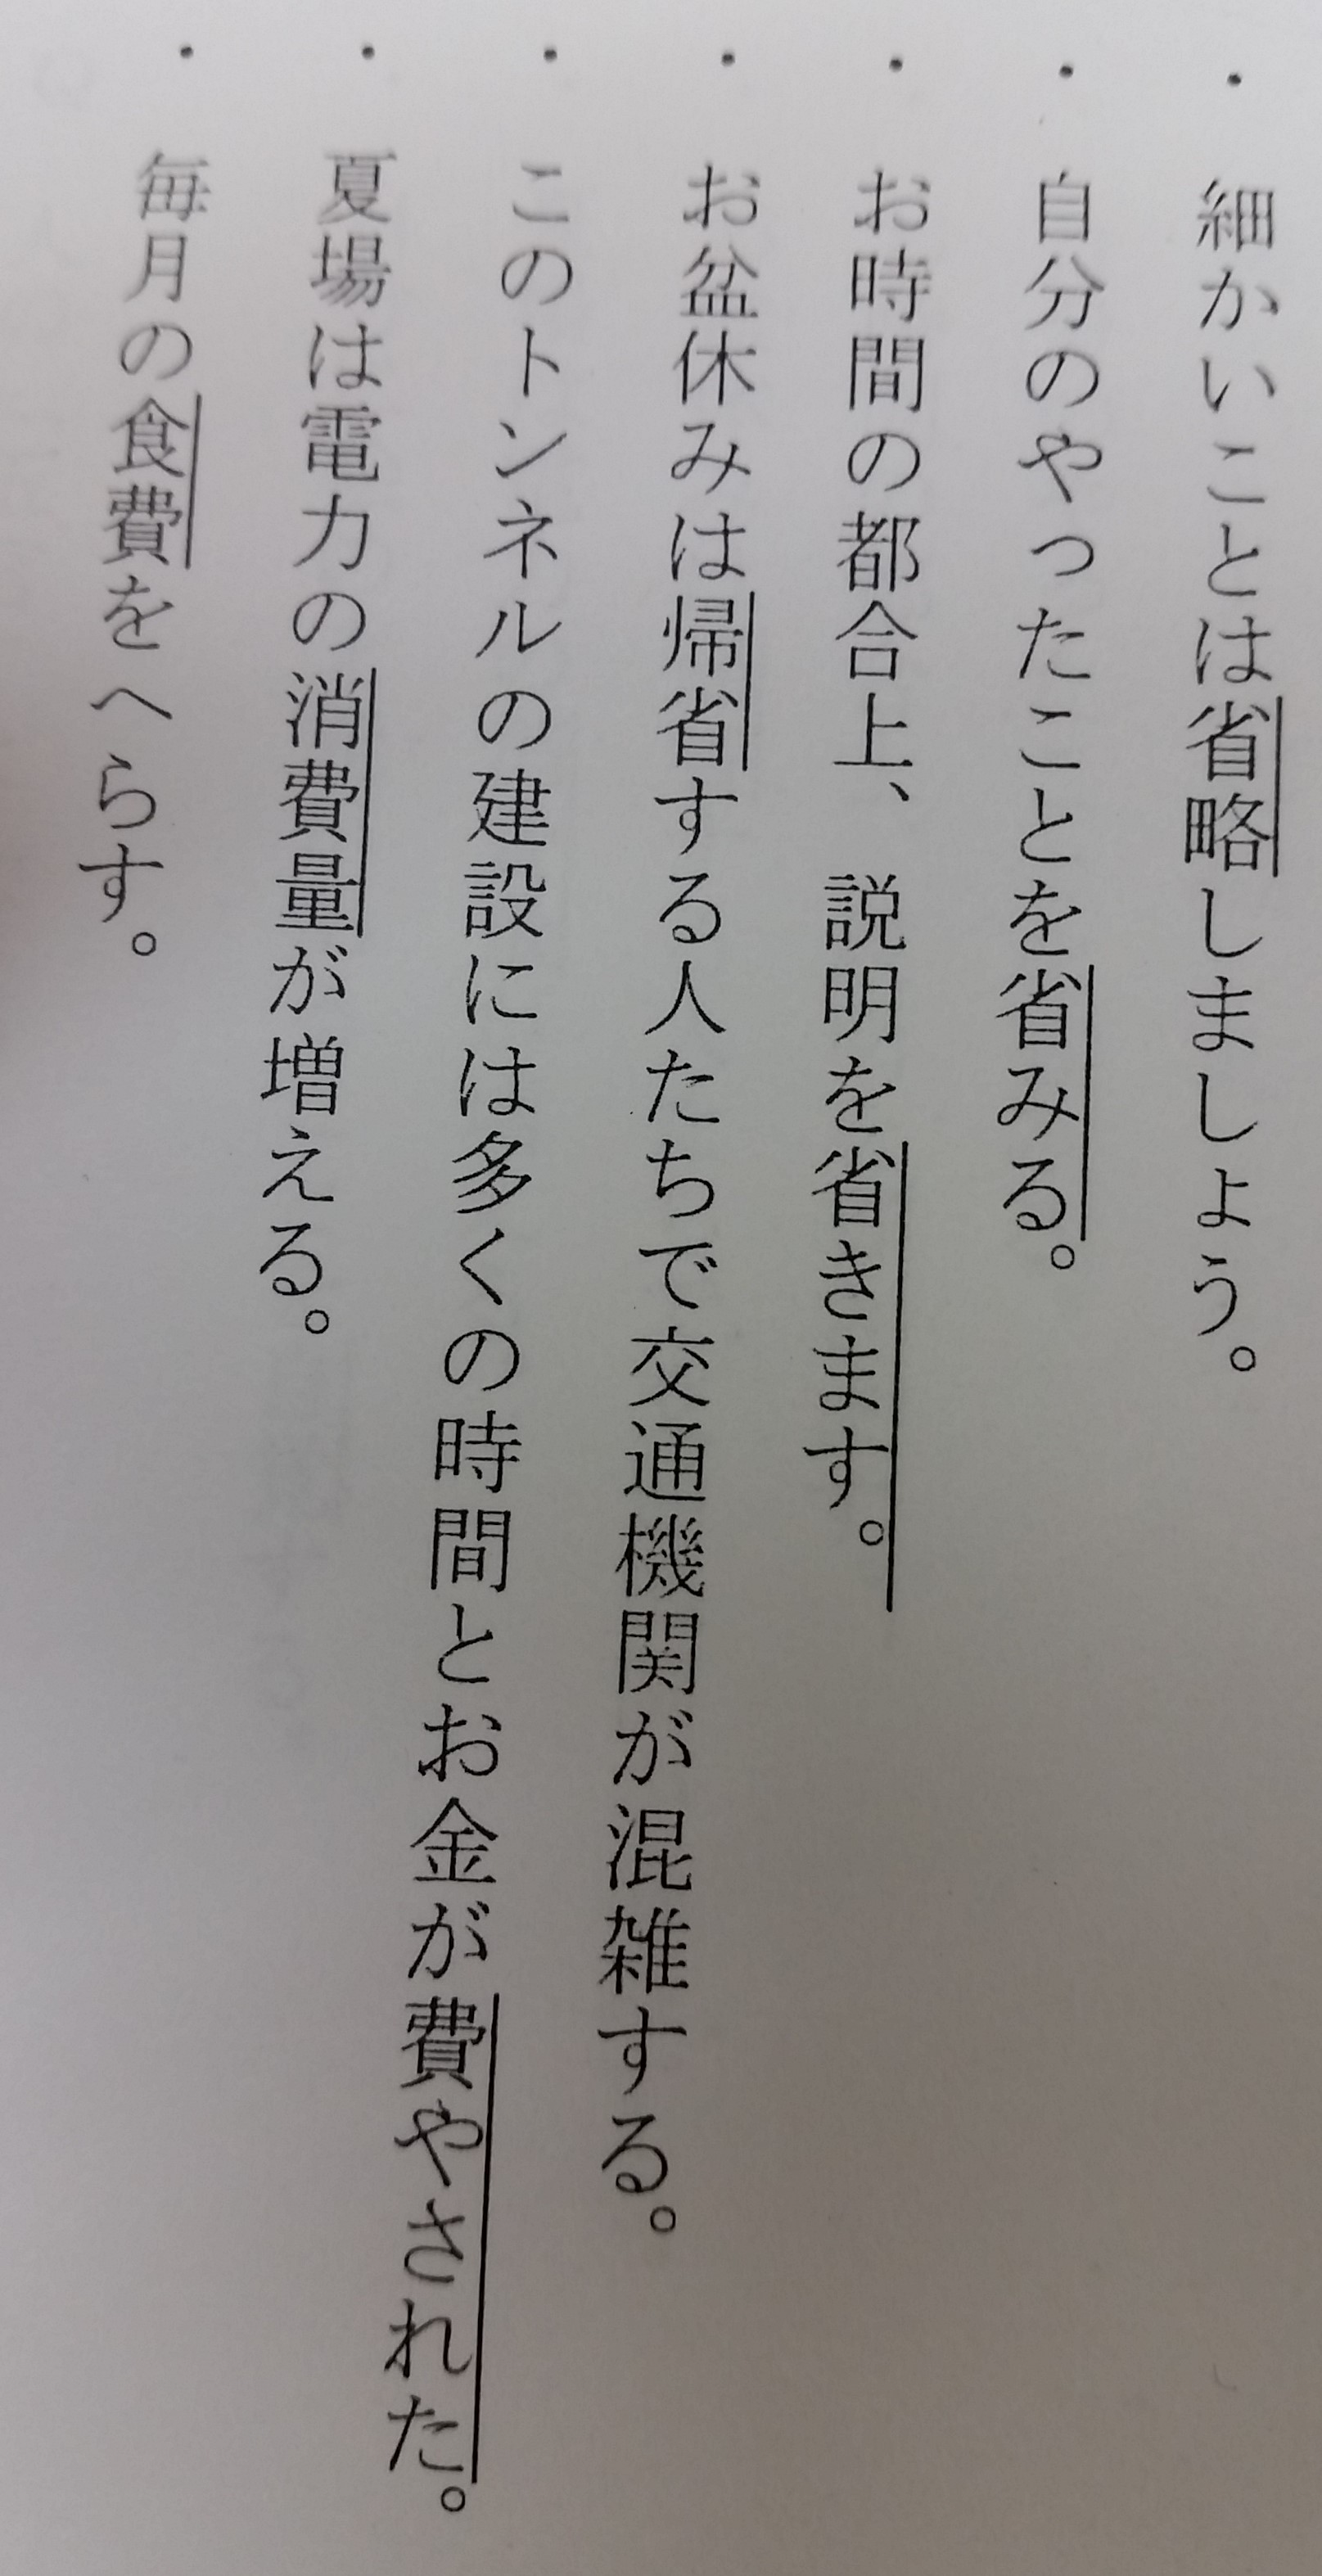 ・細かいことは省略しましょう。
・自分のやったことを省みる。
・お時間の都合上、説明を省きます。
・お盆休みは帰省する人たちで交通機関が混雑する。
・このトンネルの建設には多くの時間とお金が費やされた。
・夏場は電力の消費量が増える。
・毎月の食費をへらす。